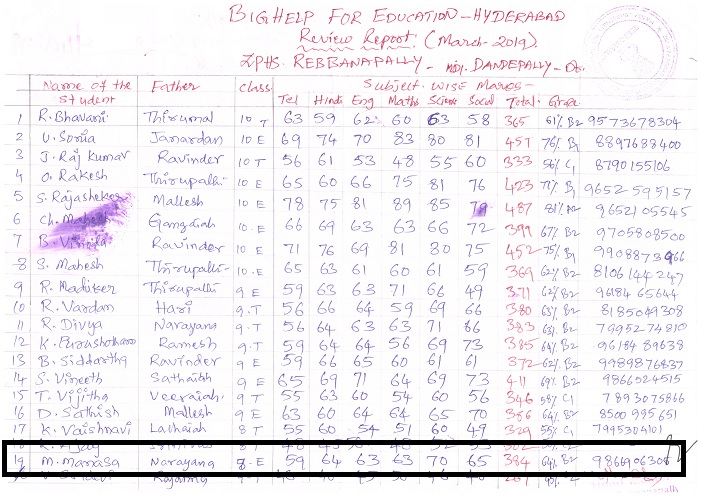 BIGHELP FOR EDUCATION - HYDERABAD
Review Report (March-2019)
ZPHS. REBBANAPALLY - DANDEPALLY -
Subject. WISE Marks -
Name of the Student Father class Tel Hindi Eng Maths Science Social Total Grade
1 R. Bhavani Thirumal 10 T 63 59 62 60 63 58 365 61% B2 9573678304
2 V. Sonia Janardan 10 E 69 74 70 83 80 81 457 76% B1 8897688400
3 J. Raj Kumar Ravinder 10 T 56 61 53 48 55 60 333 56% C1 8790155106
4 O. Rakesh Thirupathi 10 E 65 60 66 75 81 76 423 71% B1 9652595157
5 S. Rajasheker Mallesh 10 E 78 75 81 89 85 79 487 81% A2 9652105545
6 Ch. Mahesh Gangaiah 10 E 66 69 63 63 66 72 399 67% B2 9705808500
7 B. Ravinder 10 E 71 76 69 81 80 75 452 75% B1
8 S. Mahesh Thirupathi 10.E 65 63 61 60 61 59 369 62% B2 8106144247
9 R. Madhker Thirupathi 9 E 59 63 63 71 66 49 371 62% B2 9618465644
10 R. Vardan Hari 9.T 56 66 64 59 69 66 380 63% B2 8185049308
11 R. Divya Narayana 9.T 56 64 63 63 71 86 383 63% B2 7995274810
12 K. Purushotham Ramesh 9.T 59 64 64 56 69 73 385 64% B2 9618489638
13 B. Siddartha Ravinder 9 E 59 66 65 60 61 61 372 62% B2 9989876837
14 S. Vineeth Sathaiah 9 E 65 69 71 64 69 73 411 69% B2 9866024515
15 T. Vijitha Veeraiah 9 T 55 63 60 54 60 56 346 58% C1 7893075866
16 D. Sathish Mallesh 9 E 63 60 64 64 65 70 386 64% B2 8500995651
17 K. Vaishnavi Lachaiah 8 T 55 60 54 51 60 49 329 55% C1 7995304101
19 M. Manasa Narayana 8.E 59 64 63 63 70 65 384 64% B2 9866906305